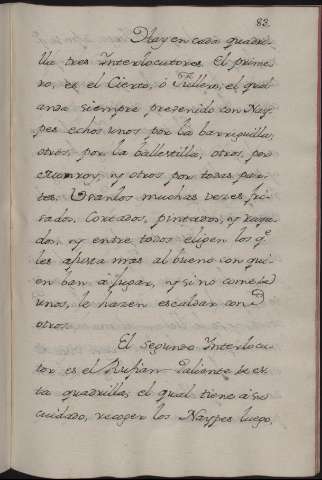 83.
Hay en cada quadri-
lla tres Interlocutores. El prime-
ro, es el Cierto, ò Fullero, el qual
anda siempre prevenido con Nay-
pes echos unos por la barriguilla,
otros, por la ballestilla, otros, por
y otros por todas par-
tes. Usanlos muchas vezes
Cortados, pintados, y raya-
dos, y entre todos eligen los q.e
les ajusta mas al bueno con qui-
en han à Jugar, y si no come de
unos, le hazen escaldar con
otros.
El segundo Interlocu-
tor es el Rufian Valiente de es-
ta quadrilla, el qual tiene à su
cuidado, recoger los Naypes luego,